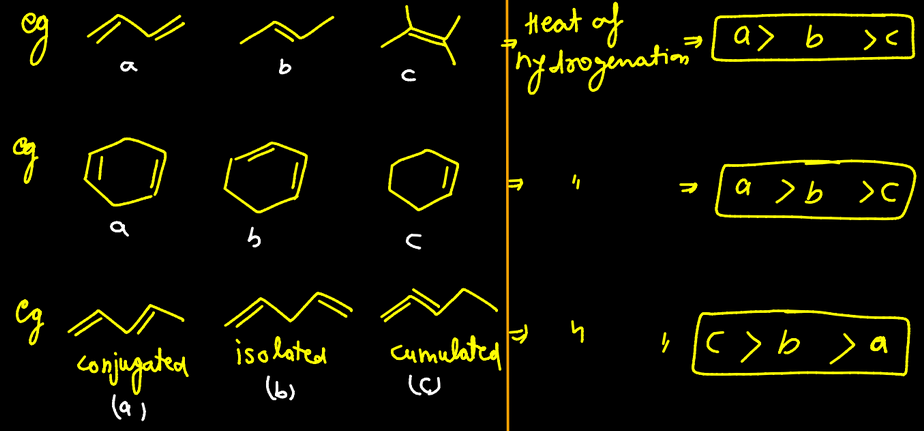 eg a b c ⇒ Heat of hydrogenation ⇒ a > b > c
eg a b c ⇒ " ⇒ a > b > c
eg conjugated (a) isolated (b) cumulated (c) ⇒ " " c > b > a